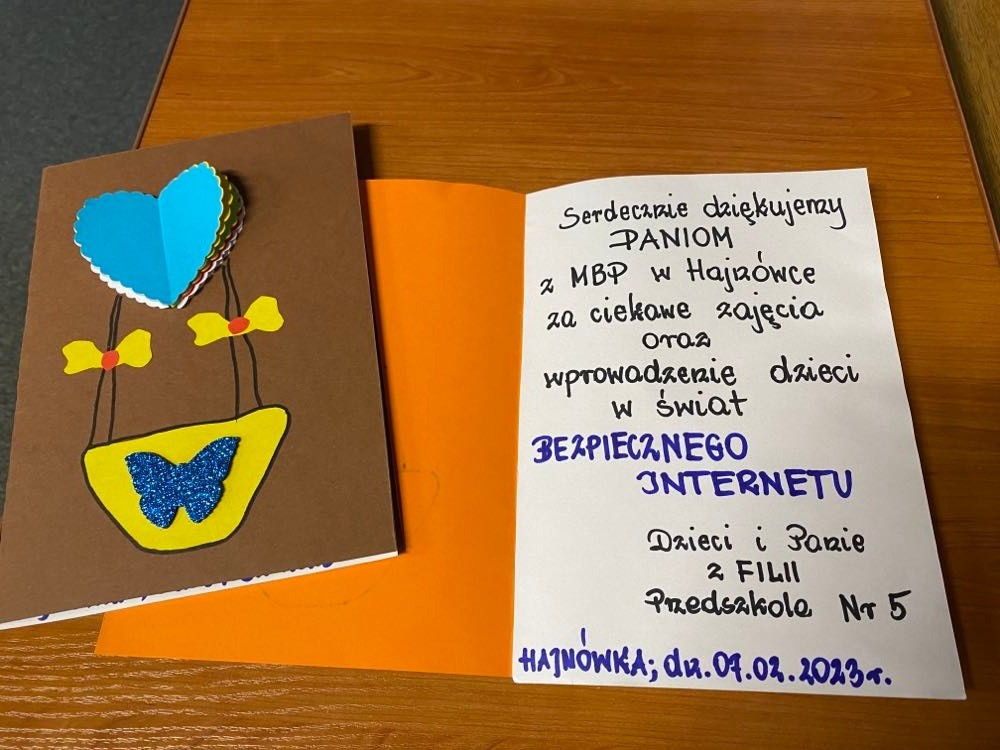 Serdecznie dziękujemy
PANIOM
z MBP w Hajnówce
za ciekawe zajęcia
oraz
wprowadzenie dzieci
w świat
BEZPIECZNEGO
INTERNETU
Dzieci i Panie
z FILII
Przedszkola Nr 5
HAJNÓWKA; dn. 07.02.2023r.